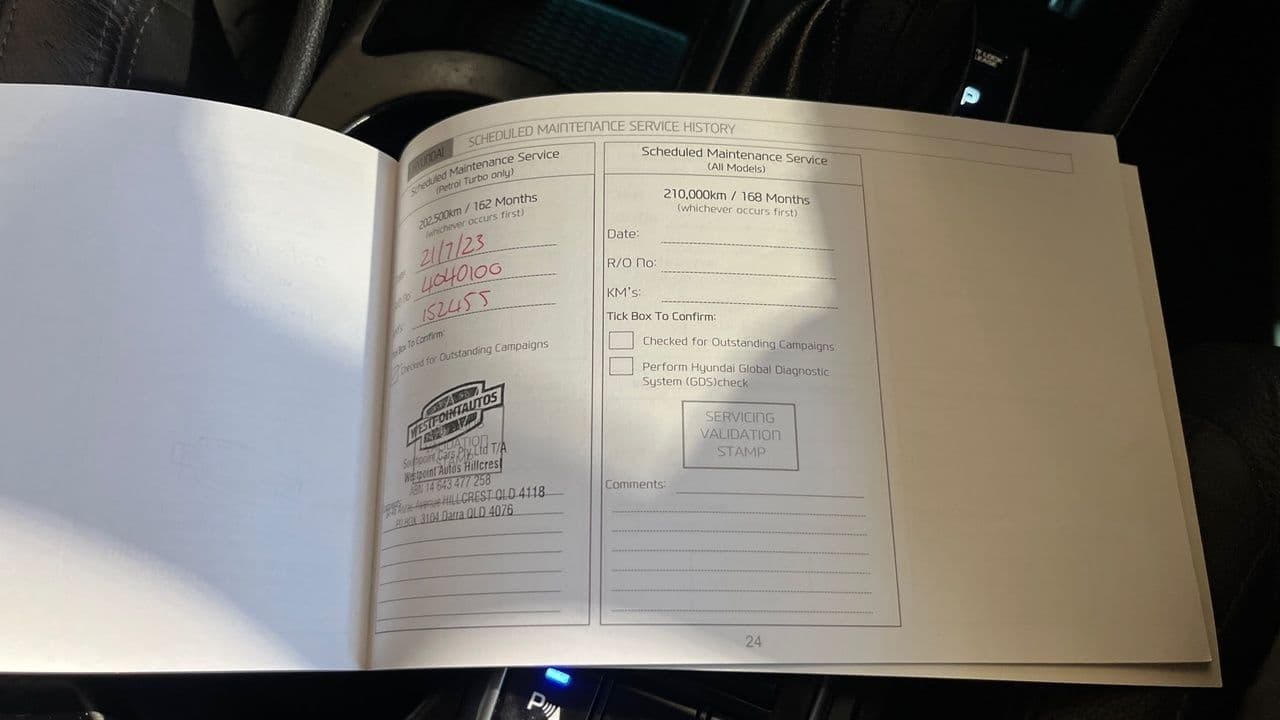 SCHEDULED MAINTENANCE SERVICE HISTORY
HYUNDAI
Scheduled Maintenance Service
(Petrol Turbo only)
202,500km / 162 Months
(whichever occurs first)
21/7/23
4040100
152455
Box To Confirm:
Checked for Outstanding Campaigns
WESTPOINTAUTOS
Southpoint Cars Pty Ltd T/A
Westpoint Autos Hillcrest
ABN 14 643 477 258
HILLCREST QLD 4118
PO BOX 3104 Darra QLD 4076
Scheduled Maintenance Service
(All Models)
210,000km / 168 Months
(whichever occurs first)
Date:
R/O No:
KM's:
Tick Box To Confirm:
Checked for Outstanding Campaigns
Perform Hyundai Global Diagnostic
System (GDS)check
SERVICING
VALIDATION
STAMP
Comments:
24
P
P